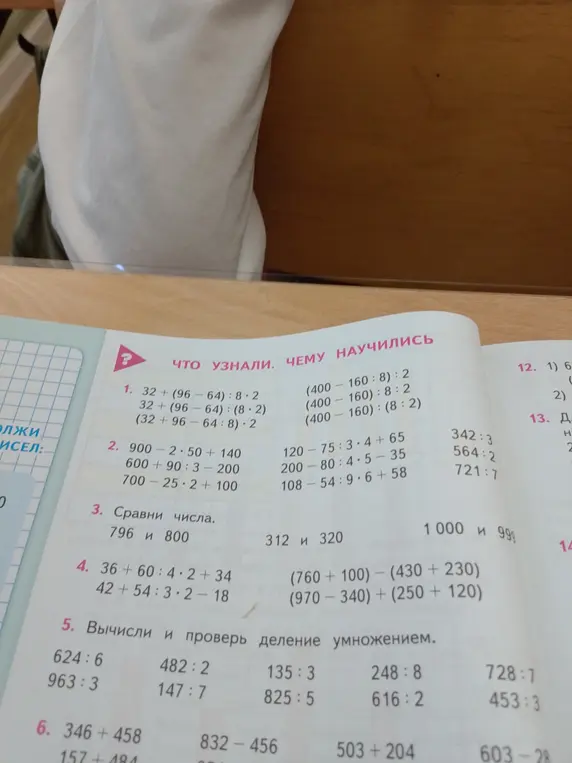 ЧТО УЗНАЛИ. ЧЕМУ НАУЧИЛИСЬ
1. 32 + (96 − 64) : 8 · 2 (400 − 160 : 8) : 2
32 + (96 − 64) : (8 · 2) (400 − 160) : 8 : 2
(32 + 96 − 64 : 8) · 2 (400 − 160) : (8 : 2)
2. 900 − 2 · 50 + 140 120 − 75 : 3 · 4 + 65 342 : 3
600 + 90 : 3 − 200 200 − 80 : 4 · 5 − 35 564 : 2
700 − 25 · 2 + 100 108 − 54 : 9 · 6 + 58 721 : 7
3. Сравни числа.
796 и 800 312 и 320 1 000 и 999
4. 36 + 60 : 4 · 2 + 34 (760 + 100) − (430 + 230)
42 + 54 : 3 · 2 − 18 (970 − 340) + (250 + 120)
5. Вычисли и проверь деление умножением.
624 : 6 482 : 2 135 : 3 248 : 8 728 : 7
963 : 3 147 : 7 825 : 5 616 : 2 453 : 3
6. 346 + 458 832 − 456 503 + 204 603 − 28
157 + 484
12. 1) 6
2)
13. Д
14